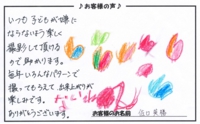 ♪お客様の声♪
いつも子どもが嫌に
ならないよう楽しく
撮影して頂けるの
で助かります。
毎年いろんなパターンで
撮ってもらえて出来上がりが
楽しみです。
ありがとうございます。
お客様のお名前